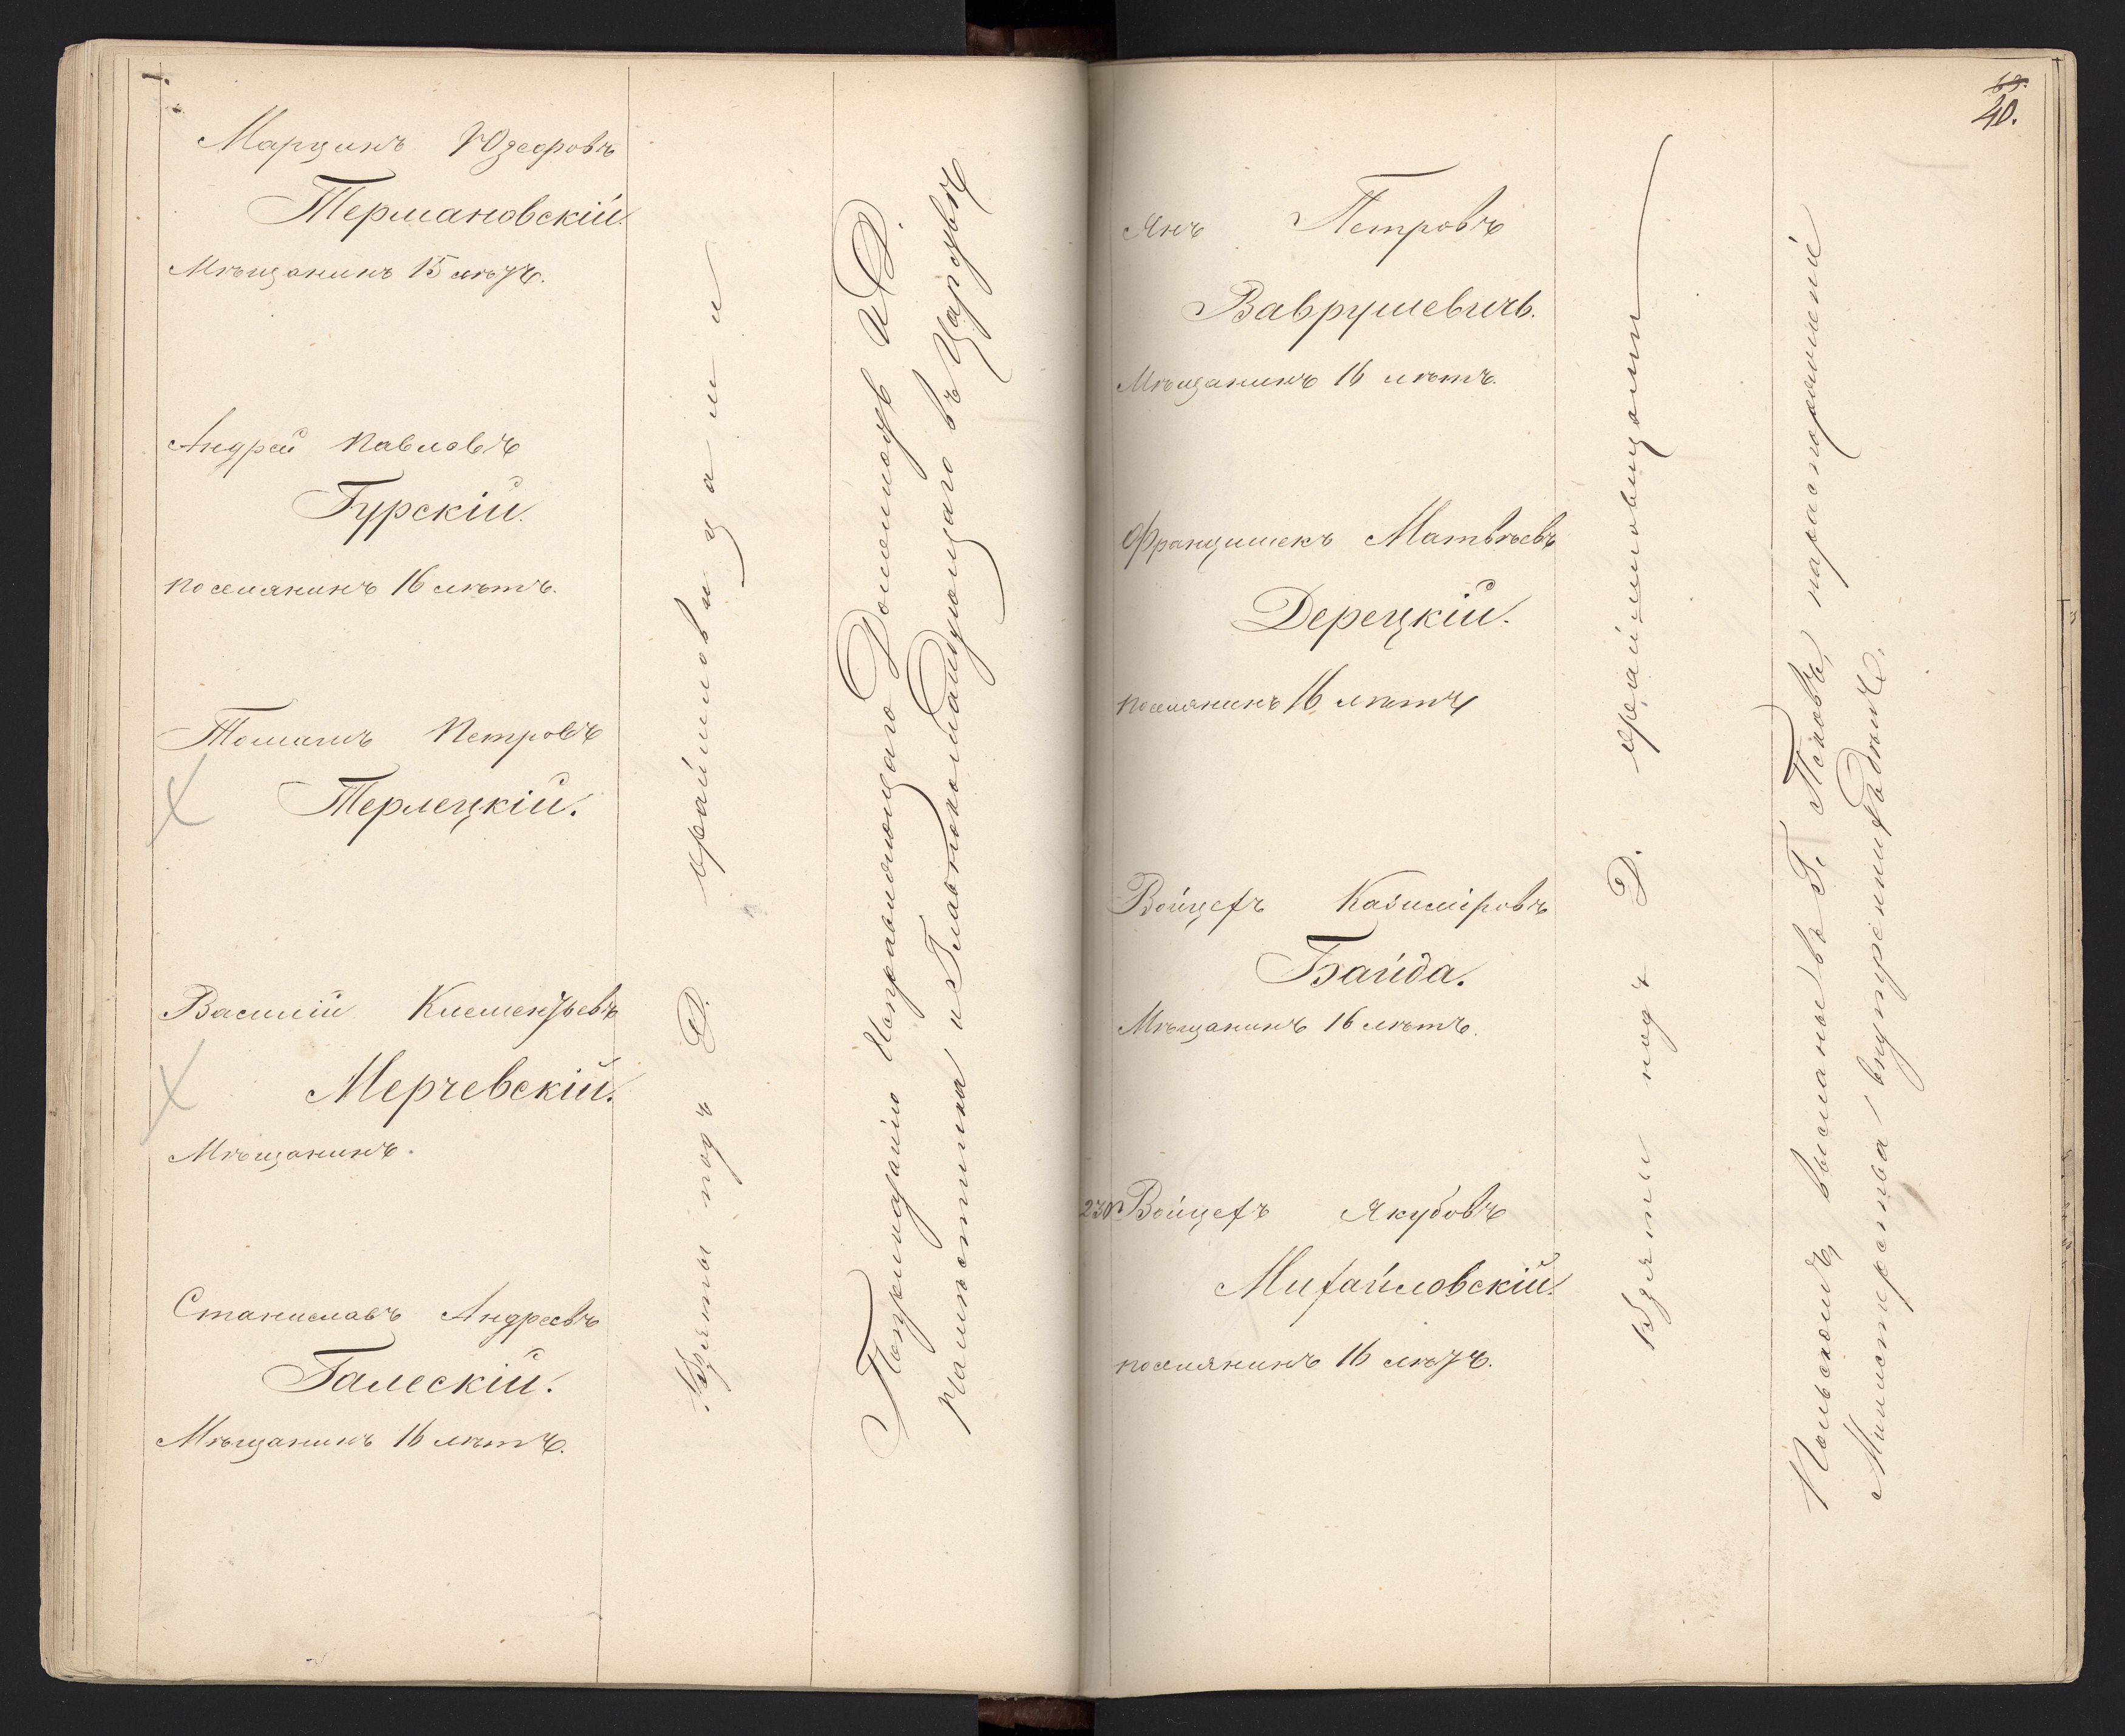 Марцинъ Юзефовъ
Термановскій
Мѣщанинъ 15 лѣтъ.
Андрей Павловъ
Гурскій.
поселянинъ 16 лѣтъ.
Томашъ Петровъ
Терлецкій.
Василій Клементьевъ
Мерчевскій.
Мѣщанинъ.
Станиславъ Андреевъ
Галескій.
Мѣщанинъ 16 лѣтъ.
Взяты подъ Д.
Попредписанію Исправляющаго Должность И Д.
Намѣстника и Главнокомандующаго въ Царствѣ
69.
40.
Янъ Петровъ
Ваврушевичъ.
Мѣщанинъ 16 лѣтъ.
Францишекъ Матвѣевъ
Дерецкій.
поселянинъ 16 лѣтъ
Войцехъ Казиміровъ
Байда.
Мѣщанинъ 16 лѣтъ.
230 Войцехъ Якубовъ
Михайловскій.
поселянинъ 16 лѣтъ.
Взяты подъ Д.
Польскомъ, высланы въ Г. Псковъ,
Министерства внутреннихъ дѣлъ.